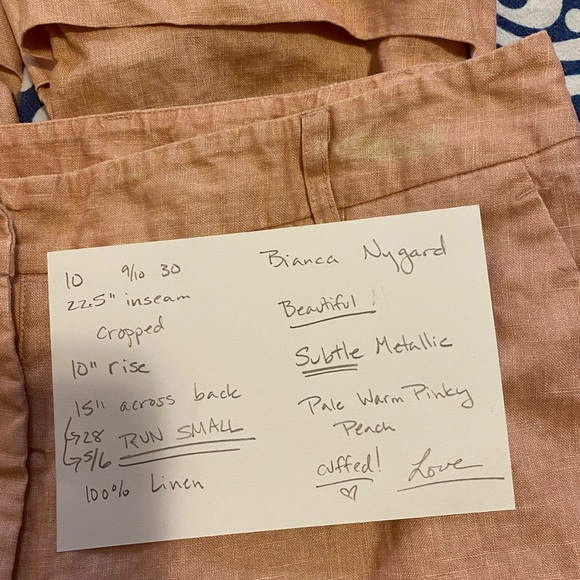 10 9/10 30
22.5" inseam
cropped
10" rise
15" across back
↳28 RUN SMALL
↳5/6
100% Linen
Bianca Nygard
Beautiful!
Subtle Metallic
Pale Warm Pinky
Peach
cuffed! Love
♡